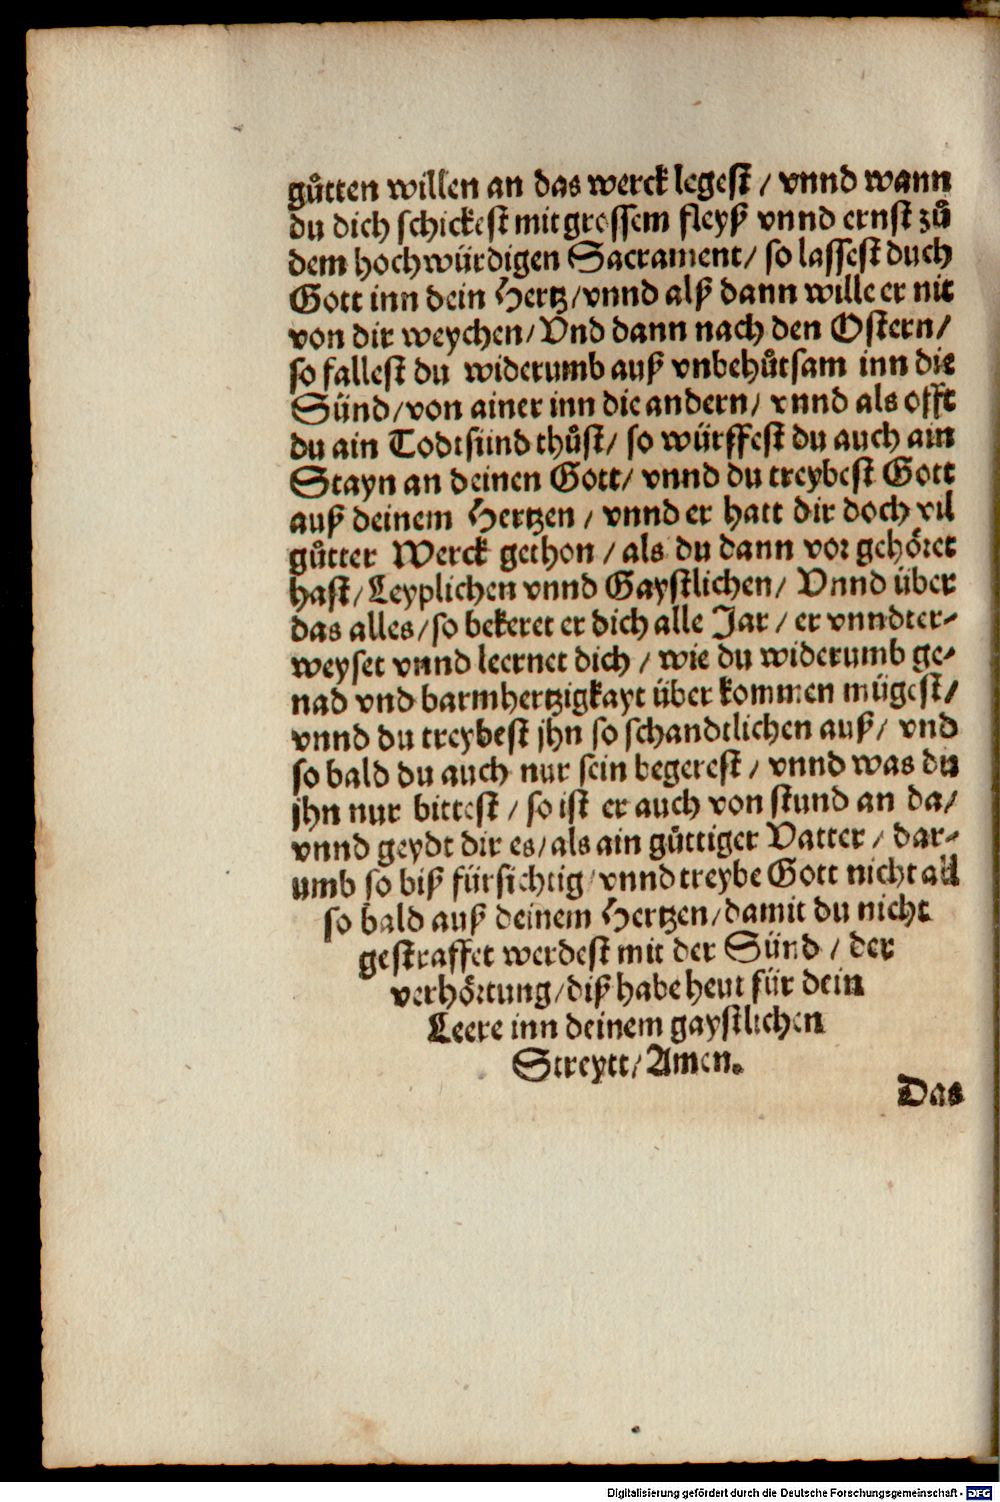 guͦtten willen an das werck legest / vnnd wann
du dich schickest mit grossem fleyß vnnd ernst zuͦ
dem hochwürdigen Sacrament/ so lassest duch
Gott inn dein Hertz/vnnd alß dann wille er nit
von dir weychen/Vnd dann nach den Ostern/
so fallest du widerumb auß vnbehuͦtsam inn die
Sünd/von ainer inn die andern/ vnnd als offt
du ain Todtsünd thuͦst/ so würffest du auch ain
Stayn an deinen Gott/ vnnd du treybest Gott
auß deinem Hertzen / vnnd er hatt dir doch vil
guͦtter Werck gethon / als du dann vor gehöret
hast/Leyplichen vnnd Gaystlichen/ Vnnd über
das alles/so bekeret er dich alle Jar / er vnndter-
weyset vnnd leernet dich / wie du widerumb ge-
nad vnd barmhertzigkayt über kommen mügest/
vnnd du treybest jhn so schandtlichen auß/ vnd
so bald du auch nur sein begerest / vnnd was du
jhn nur bittest / so ist er auch von stund an da/
vnnd geydt dir es/als ain guͦttiger Vatter / dar-
umb so biß fürsichtig/vnnd treybe Gott nicht all
so bald auß deinem Hertzen/damit du nicht
gestraffet werdest mit der Sünd / der
verhörtung/diß habe heut für dein
Leere inn deinem gaystlichen
Streytt/Amen.
Das
Digitalisierung gefördert durch die Deutsche Forschungsgemeinschaft - DFG